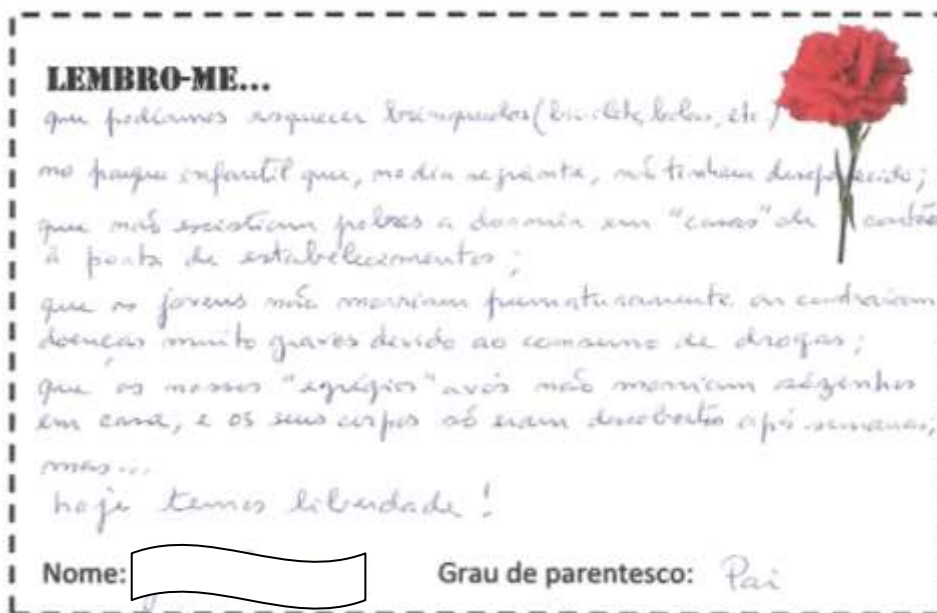 LEMBRO-ME...
que podíamos esquecer brinquedos (bicicleta, bolas, etc.)
no parque infantil que, no dia seguinte, não tinham desaparecido;
que não existiam pobres a dormir em "casas" de cartão
à porta de estabelecimentos;
que os jovens não morriam prematuramente ou contraíam
doenças muito graves devido ao consumo de drogas;
que os nossos "egrégios" avós não morriam sózinhos
em casa, e os seus corpos só eram descobertos após semanas;
mas...
hoje temos liberdade!
Nome:
Grau de parentesco: Pai